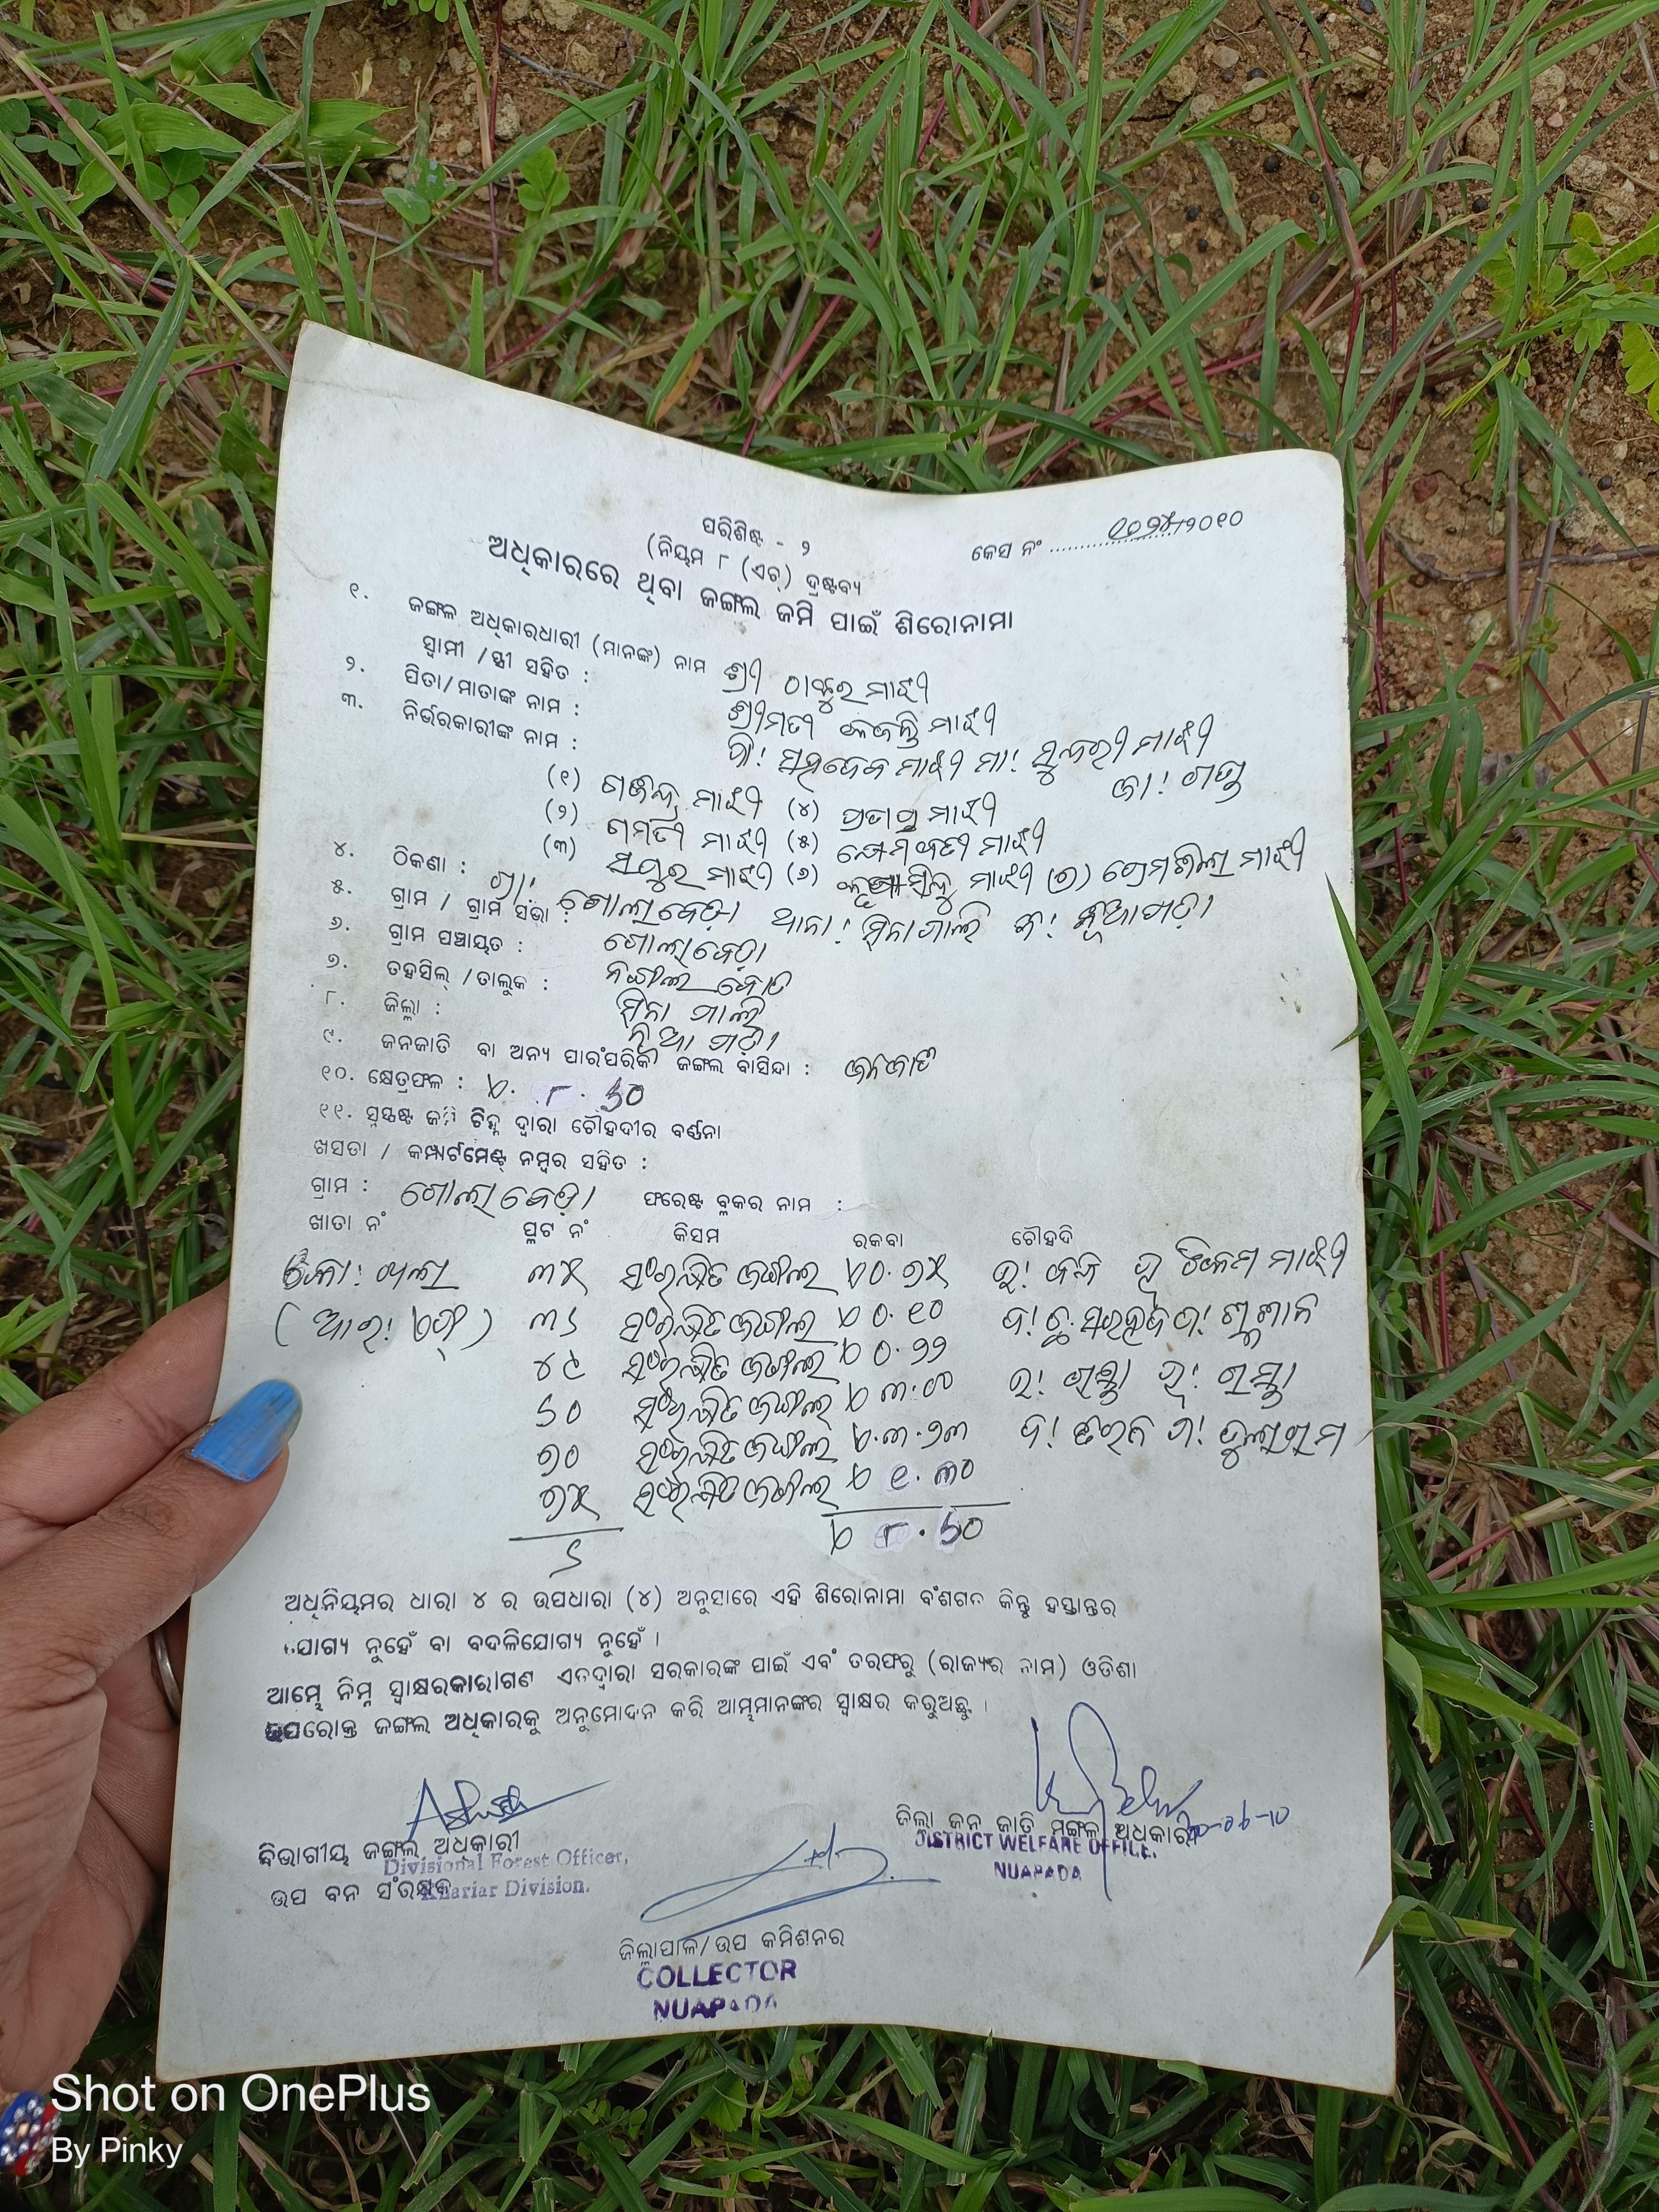 ପରିଶିଷ୍ଟ - ୨
କେସ ନଂ ......................./୨୦୧୦
(ନିୟମ ୮ (ଏଚ୍) ଦ୍ରଷ୍ଟବ୍ୟ
ଅଧିକାରରେ ଥିବା ଜଙ୍ଗଲ ଜମି ପାଇଁ ଶିରୋନାମା
୧. ଜଙ୍ଗଳ ଅଧିକାରଧାରୀ (ମାନଙ୍କ) ନାମ ଶ୍ରୀ ଠାକୁର ମାଝୀ
ସ୍ୱାମୀ /ସ୍ତ୍ରୀ ସହିତ : ଶ୍ରୀମତୀ ମାଝୀ
୨. ପିତା/ମାତାଙ୍କ ନାମ : ପି! ସହଦେବ ମାଝୀ ମା! ସୁନ୍ଦରୀ ମାଝୀ
୩. ନିର୍ଭରକାରୀଙ୍କ ନାମ : ଜା! ଗଣ୍ଡ
(୧) ଗଜିନ୍ଦ୍ର ମାଝୀ (୪) ପ୍ରତାପ ମାଝୀ
(୨) ଗମତୀ ମାଝୀ (୫) ମାଝୀ
(୩) ମାଝୀ (୬) ମାଝୀ (୭) ପ୍ରେମଶିଲା ମାଝୀ
୪. ଠିକଣା : ଗ୍ରା! ଗୋଲାବେଡ଼ା ଥାନା! ସିନାପାଲି ଜି! ନୂଆପଡ଼ା
୫. ଗ୍ରାମ / ଗ୍ରାମ ସଭା : ଗୋଲାବେଡ଼ା
୬. ଗ୍ରାମ ପଞ୍ଚାୟତ : ନଙ୍ଗଲବୋଡ
୭. ତହସିଲ୍ /ତାଲୁକ : ସିନାପାଲି
୮. ଜିଲ୍ଲା : ନୂଆପଡ଼ା
୯. ଜନଜାତି ବା ଅନ୍ୟ ପାରଂପରିକ ଜଙ୍ଗଲ ବାସିନ୍ଦା : ଜନଜାତି
୧୦. କ୍ଷେତ୍ରଫଳ : ୮.୬୦
୧୧. ସୁସ୍ପଷ୍ଟ ଜମି ଚିହ୍ନ ଦ୍ୱାରା ଚୌହଦୀର ବର୍ଣ୍ଣନା
ଖସଡା / କମ୍ପାର୍ଟମେଣ୍ଟ୍ ନମ୍ବର ସହିତ :
ଗ୍ରାମ : ଗୋଲାବେଡ଼ା ଫରେଷ୍ଟ ବ୍ଲକର ନାମ :
ଖାତା ନଂ ପ୍ଲଟ ନଂ କିସମ ରକବା ଚୌହଦି
୩୪ ସଂରକ୍ଷିତ ଜଙ୍ଗଲ ମାଝୀ
୩୬ ସଂରକ୍ଷିତ ଜଙ୍ଗଲ ୦.୧୦
୪୯ ସଂରକ୍ଷିତ ଜଙ୍ଗଲ ୦.୨୨
୬୦ ସଂରକ୍ଷିତ ଜଙ୍ଗଲ
୭୦ ସଂରକ୍ଷିତ ଜଙ୍ଗଲ ୩.୨୩
୭୪ ସଂରକ୍ଷିତ ଜଙ୍ଗଲ ୧.୩୦
୬ ୮.୬୦
ଅଧିନିୟମର ଧାରା ୪ ର ଉପଧାରା (୪) ଅନୁସାରେ ଏହି ଶିରୋନାମା ବଂଶଗତ କିନ୍ତୁ ହସ୍ତାନ୍ତର
ଯୋଗ୍ୟ ନୁହେଁ ବା ବଦଳିଯୋଗ୍ୟ ନୁହେଁ ।
ଆମ୍ଭେ ନିମ୍ନ ସ୍ୱାକ୍ଷରକାରୀଗଣ ଏତଦ୍ୱାରା ସରକାରଙ୍କ ପାଇଁ ଏବଂ ତରଫରୁ (ରାଜ୍ୟର ନାମ) ଓଡିଶା
ଉପରୋକ୍ତ ଜଙ୍ଗଲ ଅଧିକାରକୁ ଅନୁମୋଦନ କରି ଆମ୍ଭମାନଙ୍କର ସ୍ୱାକ୍ଷର କରୁଅଛୁ ।
ବିଭାଗୀୟ ଜଙ୍ଗଲ ଅଧିକାରୀ
Divisional Forest Officer,
ଉପ ବନ ସଂରକ୍ଷକ
Khariar Division.
ଜିଲ୍ଲା ଜନ ଜାତି ମଙ୍ଗଳ ଅଧିକାରୀ
DISTRICT WELFARE OFFICE.
NUAPADA
ଜିଲ୍ଲାପାଳ/ଉପ କମିଶନର
COLLECTOR
NUAPADA
Shot on OnePlus
By Pinky